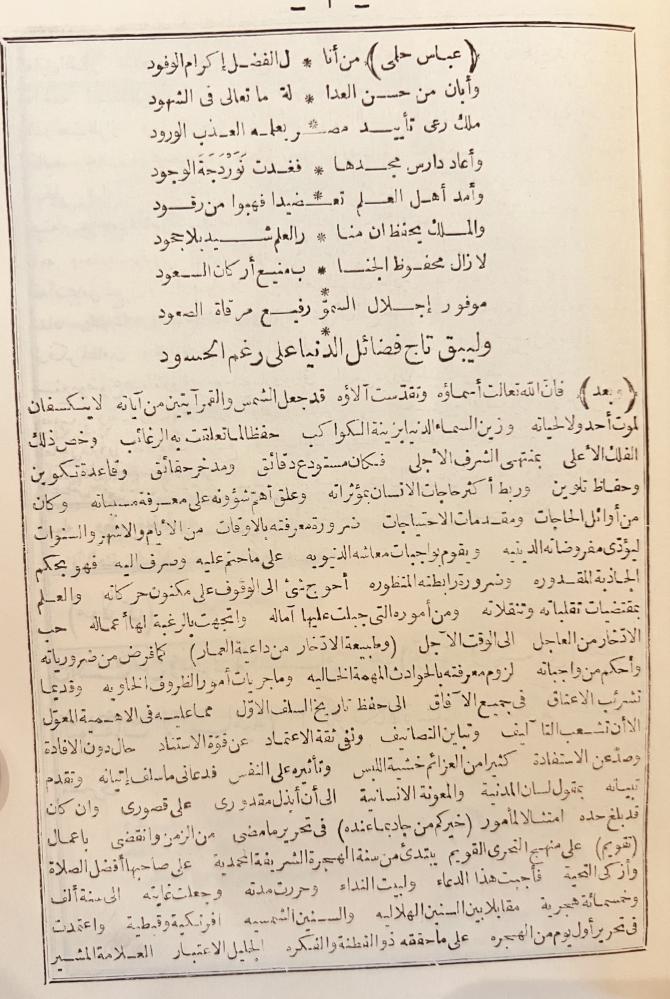 — ٣ —
(عباس حلمى) من أنا * ل الفضل إكرام الوفود
وأبان من حسن العدا * لة ما تعالى فى الشهود
ملك رعى تأييد مصـ * ـر بعلمه العذب الورود
وأعاد دارس مجدها * فغدت نَوَرْدَجَةَ الوجود
وأمد أهل العلم تعـ * ـضيدا فهبوا من رقود
والملك يحفظ ان منا * ر العلم شيد بلا جحود
لازال محفوظ الجنا * ب منيع أركان السعود
موفور إجلال السموّ * رفيع مرقاة الصعود
وليبق تاج فضائل الدنيا * على رغم الحسود
(وبعد) فانّ الله تعالت أسماؤه وتقدّست آلاؤه قد جعل الشمس والقمر آيتين من آياته لا ينكسفان
لموت أحد ولا لحياته وزين السماء الدنيا بزينة الكواكب حفظا لما تعلقت به الرغائب وخص ذلك
الفلك الأعلى بمنتهى الشرف الاجلى فكان مستودع دقائق ومدخر حقائق وقاعدة تكوين
وحفاظ تلوين وربط أكثر حاجات الانسان بمؤثراته وعلق أهمّ شؤونه على معرفة مسبباته وكان
من أوائل الحاجات ومقدمات الاحتياجات ضرورة معرفته بالاوقات من الأيام والاشهر والسنوات
ليؤدّى مفروضاته الدينيه ويقوم بواجبات معاشه الدنيويه على ما حتم عليه وصرف اليه فهو بحكم
الجاذبة المقدوره وضرورة رابطته المنظوره أحوج شئ الى الوقوف على مكنون حركاته والعلم
بمقتضيات تقلباته وتنقلاته ومن أموره التى جبلت عليها آماله واتجهت بالرغبة لها أعماله حب
الادّخار من العاجل الى الوقت الآجل (وطبيعة الادّخار من داعية العمار) كما فرض من ضرورياته
وأحكم من واجباته لزوم معرفته بالحوادث المهمة الخاليه وماجريات أمور الظروف الخاويه وقديما
تشرئب الاعناق فى جميع الآفاق الى حفظ تاريخ السلف الاوّل مما عليه فى الاهمية المعوّل
الا أن تشعب التآليف وتباين التصانيف ونفى ثقة الاعتماد عن قوّة الاستناد حال دون الافادة
وصدّ عن الاستفادة كثيرا من العزائم خشية اللبس وتأثيره على النفس فدعانى ما سلف إتيانه وتقدم
تبيانه بمقول لسان المدنية والمعونة الانسانية الى أن أبذل مقدورى على قصورى وان كان
قد بلغ حده امتثالا لمأمور (خيركم من جاد بما عنده) فى تحرير ما مضى من الزمن وانقضى باعمال
(تقويم) على منهج التحرى القويم يبتدئ من سنة الهجرة الشريفة المحمدية على صاحبها أفضل الصلاة
وأزكى التحية فأجبت هذا الدعاء ولبيت النداء وحررت مدته وجعلت غايته الى سنة ألف
وخمسمائة هجرية مقابلا بين السنين الهلاليه والسنين الشمسيه افرنكية وقبطية واعتمدت
فى تحرير أول يوم من الهجره على ما حققه ذو الفطنة والفكره الجليل الاعتبار العلامة المشير